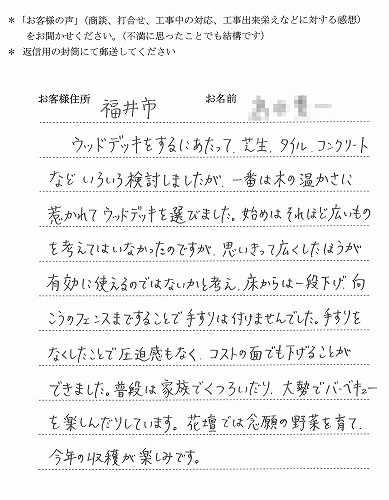 ＊「お客様の声」(商談、打合せ、工事中の対応、工事出来栄えなどに対する感想)
をお聞かせください。(不満に思ったことでも結構です)
＊ 返信用の封筒にて郵送してください
お客様住所 福井市 お名前
ウッドデッキをするにあたって、芝生、タイル、コンクリート
など いろいろ検討しましたが、一番は木の温かさに
惹かれて ウッドデッキを選びました。始めは それほど広いもの
を考えてはいなかったのですが、思いきって広くしたほうが
有効に使えるのではないかと考え、床からは一段下げ、向
こうのフェンスまですることで手すりは付けませんでした。手すりを
なくしたことで圧迫感もなく、コストの面でも下げることが
できました。普段は家族でくつろいだり、大勢でバーベキュー
を楽しんだりしています。花壇では念願の野菜を育て、
今年の収穫が楽しみです。